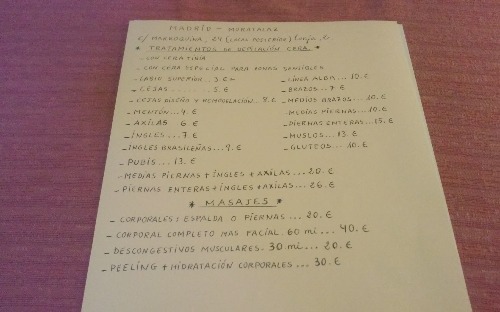 MADRID - MORATALAZ
C/ MARROQUINA, 24 (LOCAL
* TRATAMIENTOS DE DEPILACIÓN CERA *
- CON CERA TIBIA
- CON CERA ESPECIAL PARA ZONAS SENSIBLES
- LABIO SUPERIOR.. 3.€
- CEJAS........ 5.€
- CEJAS DISEÑO Y REMODELACIÓN.. 8.€
- MENTÓN...7.€
- AXILAS 6 €
- INGLES...7.€
- INGLES BRASILEÑAS...9.€
- PUBIS...13.€
- LÍNEA ALBA...10.€
- BRAZOS...7 €
- MEDIOS BRAZOS...10.€
- MEDIAS PIERNAS...10.€
- PIERNAS ENTERAS...15.€
- MUSLOS...13.€
- GLUTEOS...10.€
- MEDIAS PIERNAS + INGLES + AXILAS...20.€
- PIERNAS ENTERAS + INGLES + AXILAS...26.€
* MASAJES *
- CORPORALES: ESPALDA O PIERNAS...20.€
- CORPORAL COMPLETO MAS FACIAL. 60 mi... 40.€
- DESCONGESTIVOS MUSCULARES. 30 mi... 20.€
- PEELING + HIDRATACIÓN CORPORALES... 30.€